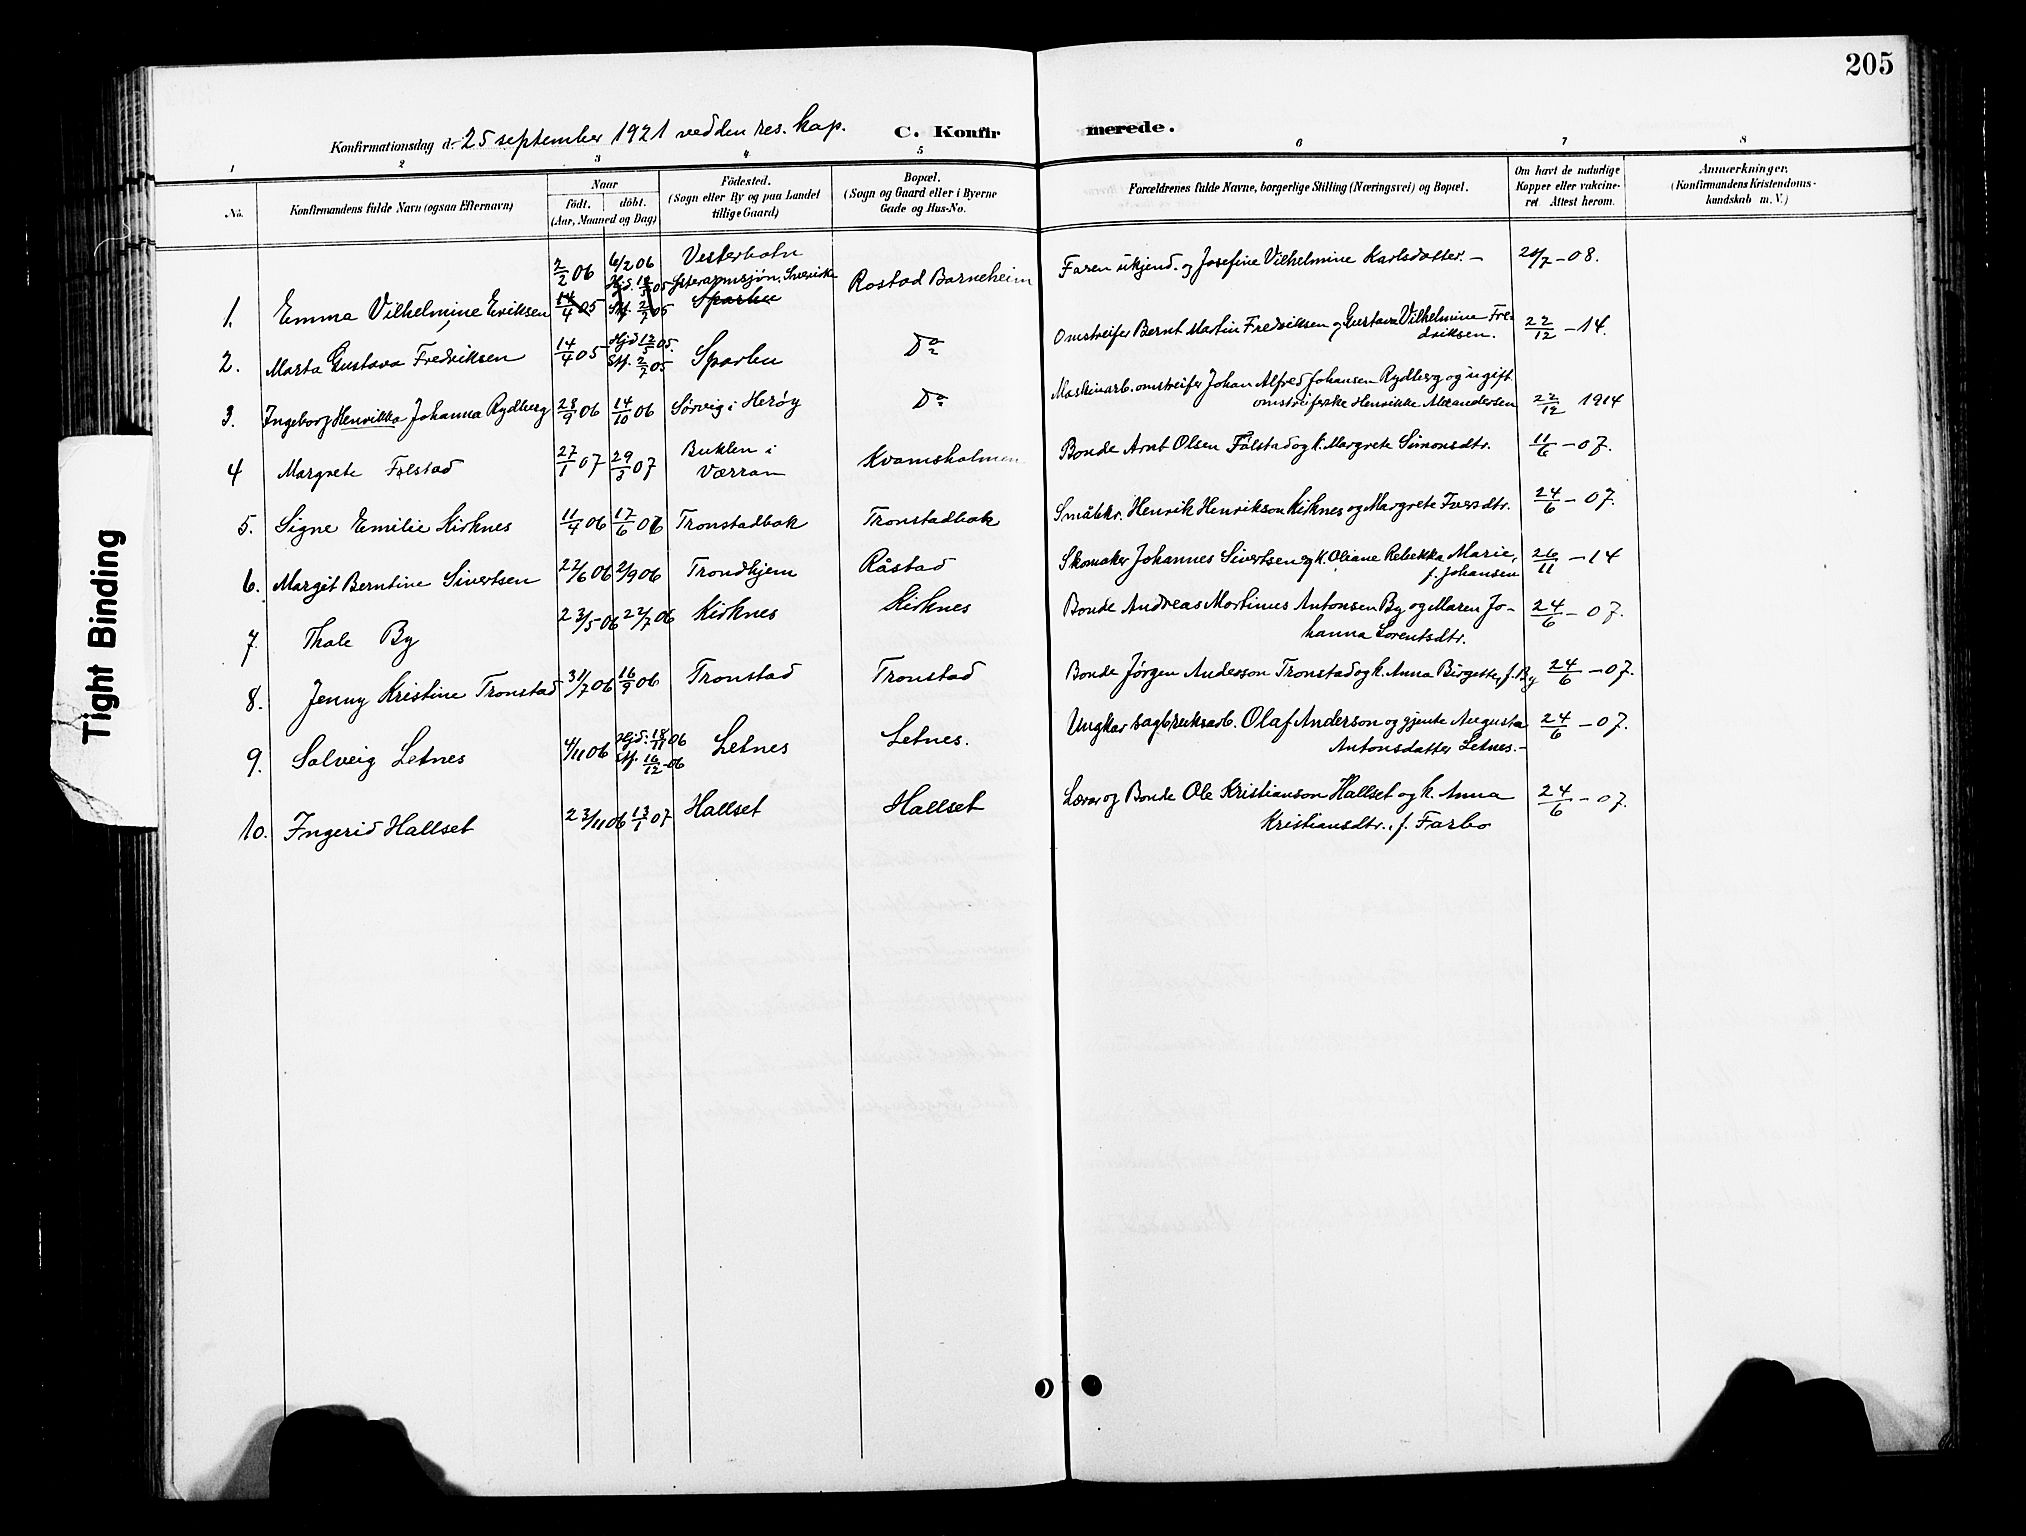 205
Konfirmationsdag d. 25 september 1921 ved den res. kap. C. Konfirmerede.
1 2 3 4 5 6 7 8
No.
Konfirmandens fulde Navn (ogsaa Efternavn)
Naar
født. døbt.
(Aar, Maaned og Dag)
Födested.
(Sogn eller By og paa Landet
tillige Gaard)
Bopæl.
(Sogn og Gaard eller i Byerne
Gade og Hus-No.
Forældrenes fulde Navne, borgerlige Stilling (Næringsvei) og Bopæl.
Om havt de naturlige
Kopper eller vakcine-
ret Attest herom.
Anmærkninger.
(Konfirmandens Kristendoms-
kundskab m. V.)
1. Emma Vilhelmine Eriksen 2/2 06 6/2 06 Vesterbotn Rostad Barneheim Faren ukjend. og Josefine Vilhelmine Karlsdatter. — 08.
14/4 05 Sparbu
2. Marta Gustava Fredriksen 14/4 05 Hjd 12/5 05. Stf. 2/7 05 Sparbu Do Omstreifer Bernt Martin Fredriksen og Gustava Vilhelmine Fre-
driksen. 22/12 – 14.
3. Ingeborg Henrikka Johanna Rydberg 28/9 06 14/10 06 Sørvig i Herøy Do Maskinarb. omstreifer Johan Alfred Johansen Rydberg og ugift
omstreiferske Henrikke Alexandersen 22/12 1914
4 Margrete Folstad 27/1 07 29/3 07 Buklen i
Værran Kvamsholmen Bonde Arnt Olsen Folstad og k. Margrete Simonsdtr. 11/6 – 07.
5. Signe Emilie Kirknes 11/4 06 17/6 06 Tronstadbak Tronstadbak Småbkr. Henrik Henrikson Kirknes og Margrete Iversdtr. 24/6 – 07.
6. Margit Berntine Sivertsen 22/6 06 2/9 06 Trondhjem Råstad Skomaker Johannes Sivertsen og k. Oliane Rebekka Marie,
f. Johansen 26/11 – 14
7. Thale By 23/5 06 22/7 06 Kirknes Kirknes Bonde Andreas Martinus Antonsen By og Maren Jo-
hanna Lorentsdtr. 24/6 – 07.
8. Jenny Kristine Tronstad 31/7 06 16/9 06 Tronstad Tronstad Bonde Jørgen Anderson Tronstad og k. Anna Birgitte, f. By 24/6 – 07.
9. Solveig Letnes 4/11 06 Hjd. 18/11 06 Stf. 16/12 06 Letnes Letnes. Ungkar sagbruksarb. Olaf Anderson og gjente Augusta
Antonsdatter Letnes. – 24/6 – 07.
10. Ingerid Hallset 23/11 06 13/1 07 Hallset Hallset Lærar og Bonde Ole Kristianson Hallset og k. Anna
Kristiansdtr., f. Farbo 24/6 – 07.
Tight Binding